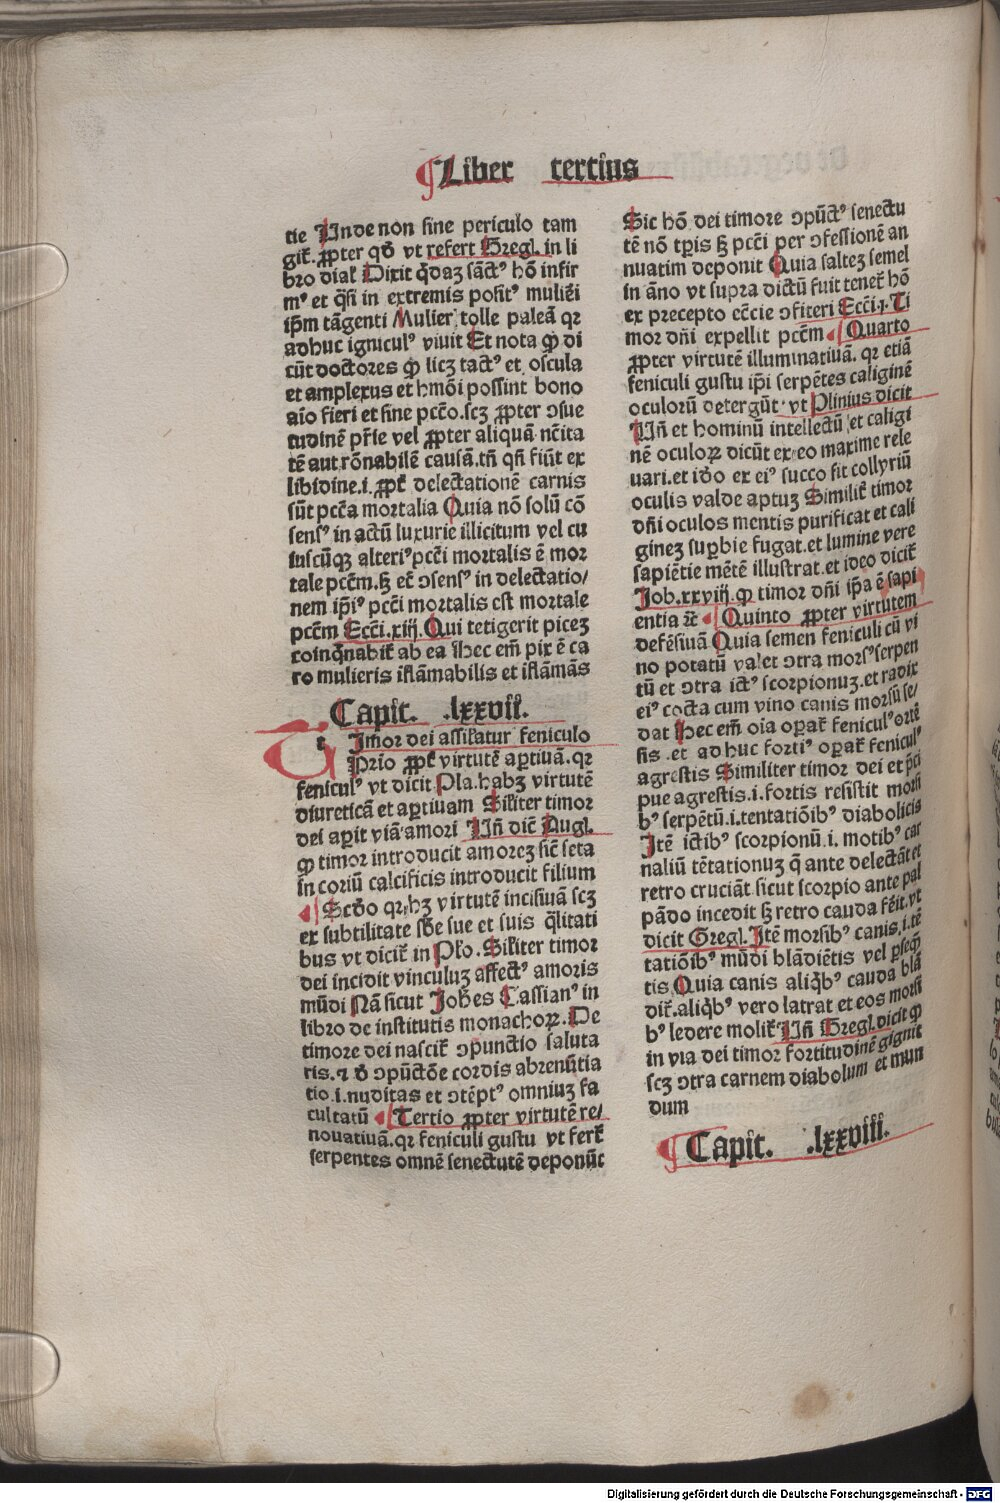 ¶Liber tertius
tie Unde non sine periculo tam
git̃. ꝓpter qď vt refert Gregl. in li
bro dial̃ Dixit q̃daʒ sãctꝰ hõ infir
mꝰ et q̃si in extremis positꝰ mulieri
ip̃m tãgenti Mulier tolle paleã qꝛ
adhuc igniculꝰ viuit Et nota ꝙ di
cũt doctores ꝙ licʒ tactꝰ et oscula
et amplexus et hmõi possint bono
aĩo fieri et sine pctõ.scʒ ꝓpter ↄsue
tudinẽ pr̃ie vel ꝓpter aliquã nc̃ita
tẽ aut rõnabilẽ causã.tñ qñ fiũt ex
libidine.i.ꝓpt̃ delectationẽ carnis
sũt pctã mortalia Quia nõ solũ cõ
sensꝰ in actũ luxurie illicitum vel cu
iuscũqʒ alteriꝰ pctĩ mortalis ẽ mor
tale pctm̃.sʒ et̃ ↄsensꝰ in delectatio/
nem ip̃iꝰ pctĩ mortalis est mortale
pctm̃ Ecci.xiij.Qui tetigerit piceʒ
coinq̃nabit̃ ab ea Hec em̃ pix ẽ ca
ro mulieris iflãmabilis et iflãmãs
Capit. .lxxvij.
t Imor dei assilatur feniculo
Prio ꝓpt̃ virtutẽ aꝑtiuã.qꝛ
feniculꝰ vt dicit Pla.habʒ virtutẽ
diureticã et aꝑtiuam Sil̃iter timor
dei aꝑit viã amori Uñ dic̃ Augl.
ꝙ timor introducit amoreʒ sic̃ seta
in coriũ calcificis introducit filium
¶Scďo qꝛ hʒ virtutẽ incisiuã scʒ
ex subtilitate sb̃e sue et suis q̃litati
bus vt dicit̃ in Plo.Sil̃iter timor
dei incidit vinculuʒ affectꝰ amoris
mũdi Nã sicut Joh̃es Cassianꝰ in
libro de institutis monachoꝝ.De
timore dei nascit̃ ↄpunctio saluta
ris.⁊ ď ↄpũctõe cordis abrenũtia
tio.i.nuditas et ↄtẽptꝰ omniuʒ fa
cultatũ ¶Tertio ꝓpter virtutẽ re/
nouatiuã.qꝛ feniculi gustu vt fert̃
serpentes omnẽ senectutẽ deponũt
Sic hõ dei timore ↄpũctꝰ senectu
tẽ nõ tꝑis sʒ pctĩ per ↄfessionẽ an
nuatim deponit Quia salteʒ semel
in ãno vt supra dictũ fuit tenet̃ hõ
ex precepto ecc̃ie ↄfiteri Ecci.j.Ti
mor dñi expellit pctm̃ ¶Quarto
ꝓpter virtutẽ illuminatiuã.qꝛ etiã
feniculi gustu ip̃i serpẽtes caliginẽ
oculorũ detergũt vt Plinius dicit
Uñ et hominũ intellectũ et caligi
nẽ oculoꝝ dicũt ex eo maxime rele
uari.et iďo ex eiꝰ succo fit collyriũ
oculis valde aptuʒ Similit̃ timor
dñi oculos mentis purificat et cali
gineʒ suꝑbie fugat.et lumine vere
sapiẽtie mẽtẽ illustrat.et ideo dicit̃
Job.xxviij.ꝙ timor dñi ip̃a ẽ sapi
entia ⁊c̃ ¶Quinto ꝓpter virtutem
defẽsiuã Quia semen feniculi cũ vi
no potatũ valet ↄtra morsꝰ serpen
tũ et ↄtra ictꝰ scorpionuʒ.et radix
eiꝰ cocta cum vino canis morsũ se/
dat Hec em̃ oĩa oꝑat̃ feniculꝰ ortẽ
sis.et adhuc fortiꝰ oꝑat̃ feniculꝰ
agrestis Similiter timor dei et p̃ci
pue agrestis.i.fortis resistit morsi
bꝰ serpẽtũ.i.tentatiõibꝰ diabolicis
Itẽ ictibꝰ scorpionũ.i.motibꝰ car
naliũ tẽtationuʒ q̃ ante delectãt et
retro cruciãt sicut scorpio ante pal
pãdo incedit sʒ retro cauda fẽit.vt
dicit Gregl.Itẽ morsibꝰ canis.i.tẽ
tatiõibꝰ mũdi blãdiẽtis vel ꝑseq̃n
tis Quia canis aliq̃bꝰ cauda blã
dit̃.aliq̃bꝰ vero latrat et eos morsi
bꝰ ledere molit̃ Uñ Gregl.dicit ꝙ
in via dei timor fortitudinẽ gignit
scʒ ↄtra carnem diabolum et mun
dum
¶Capit. .lxxviij.
Digitalisierung gefördert durch die Deutsche Forschungsgemeinschaft - DFG